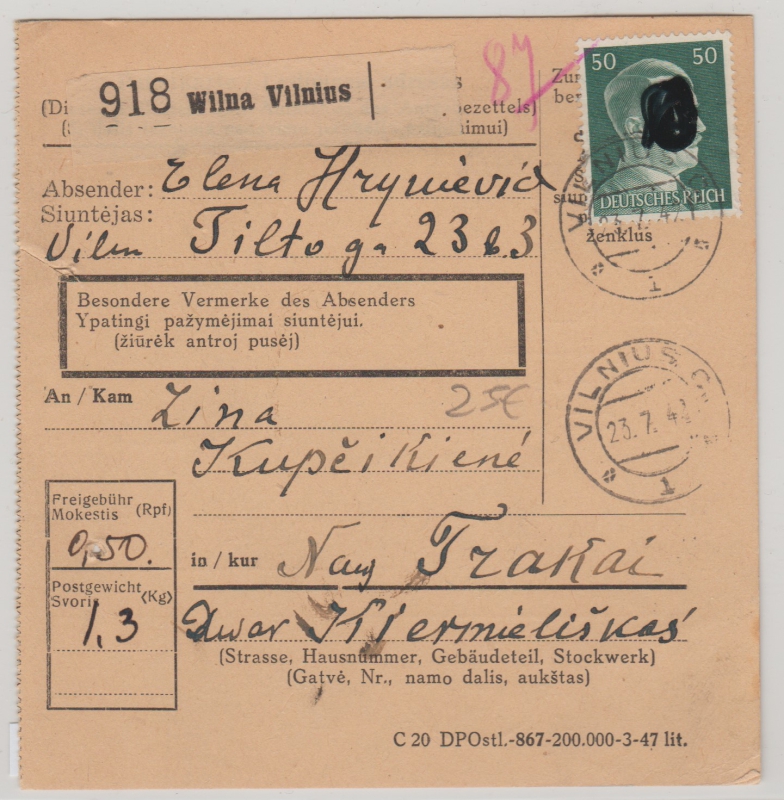 918 Wilna Vilnius
84
(Di
bezettels)
(
imui)
Zur
ber
50 50
DEUTSCHES REICH
siun
ženklus
Absender: Elena Hryniević
Siuntėjas:
Viln Tilto ga 23 b. 3
VILNIUS
23.7.42
1
Besondere Vermerke des Absenders
Ypatingi pažymėjimai siuntėjui.
(žiūrėk antroj pusėj)
An / Kam Zina
25€
Kupčikienė
VILNIUS C.
23.7.42
1
Freigebühr
Mokestis (Rpf)
0,50.
in / kur Nauj Trakai
Postgewicht
Svoris (Kg)
1.3
Dwar Kiermieliškas
(Strasse, Hausnummer, Gebäudeteil, Stockwerk)
(Gatvė, Nr., namo dalis, aukštas)
C 20 DPOstl.-867-200.000-3-47 lit.